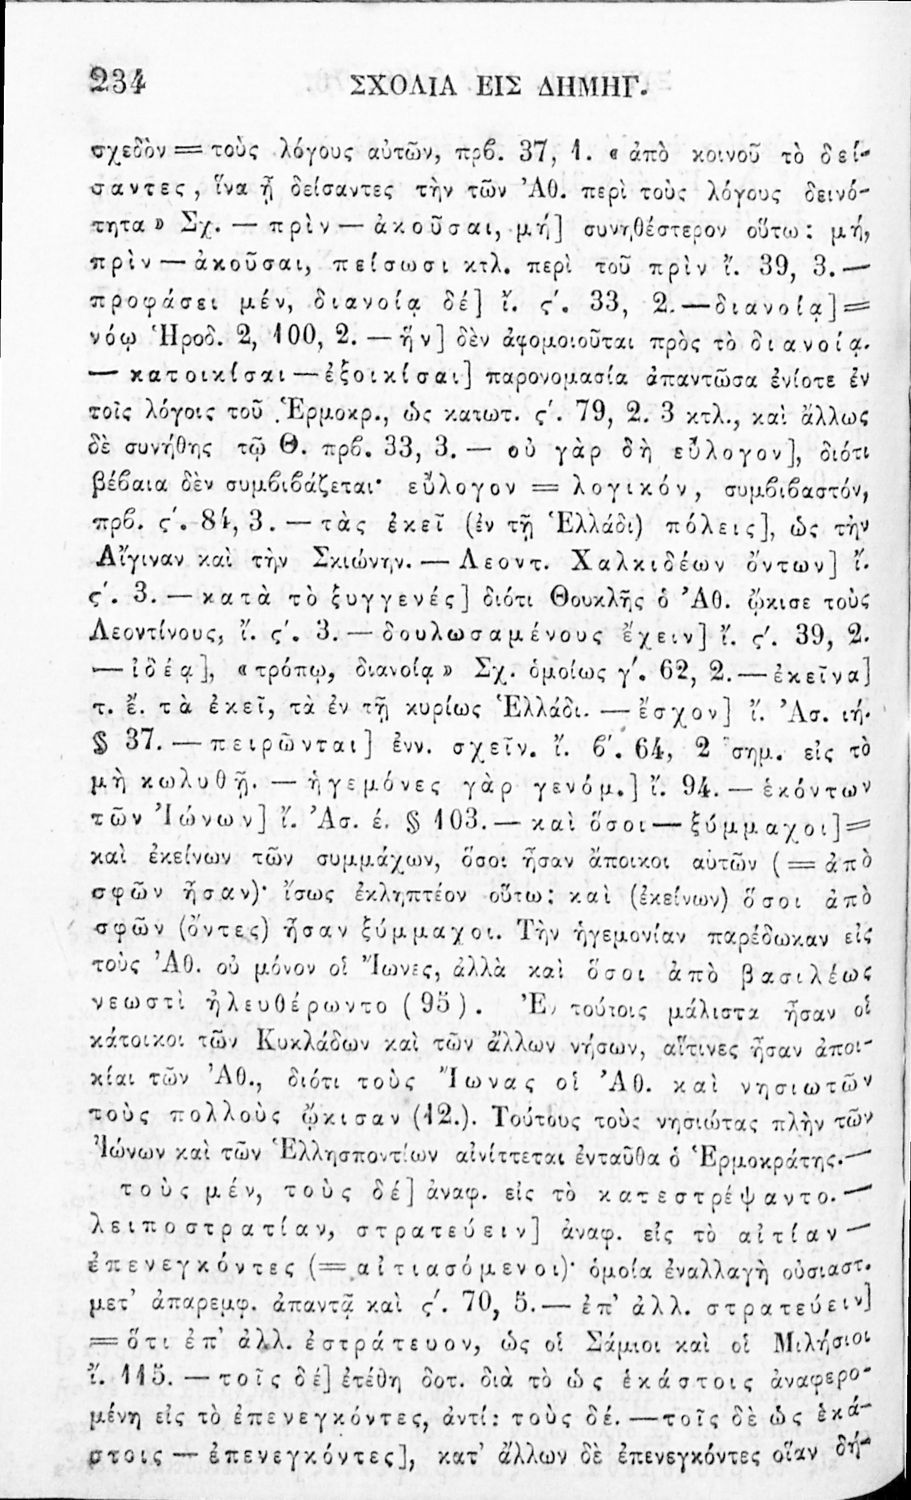 234 ΣΧΟΛΙΑ ΕΙΣ ΔΗΜΗΓ.
σχεδὸν = τοὺς λόγους αὐτῶν, πρβ. 37, 1. « ἀπὸ κοινοῦ τὸ δεί-
σαντες, ἵνα ᾖ δείσαντες τὴν τῶν Ἀθ. περὶ τοὺς λόγους δεινό-
τητα » Σχ. — πρὶν — ἀκοῦσαι, μή] συνηθέστερον οὕτω: μή,
πρὶν — ἀκοῦσαι, πείσωσι κτλ. περὶ τοῦ πρὶν ἴ. 39, 3. —
προφάσει μέν, διανοίᾳ δέ] ἴ. ς΄. 33, 2. — διανοίᾳ] =
νόῳ Ἡροδ. 2, 100, 2. — ἣν] δὲν ἀφομοιοῦται πρὸς τὸ διανοίᾳ.
— κατοικίσαι — ἐξοικίσαι] παρονομασία ἀπαντῶσα ἐνίοτε ἐν
τοῖς λόγοις τοῦ Ἑρμοκρ., ὡς κατωτ. ς΄. 79, 2. 3 κτλ., καὶ ἄλλως
δὲ συνήθης τῷ Θ. πρβ. 33, 3. — οὐ γὰρ δὴ εὔλογον], διότι
βέβαια δὲν συμβιβάζεται· εὔλογον = λογικόν, συμβιβαστόν,
πρβ. ς΄. 84, 3. — τὰς ἐκεῖ (ἐν τῇ Ἑλλάδι) πόλεις], ὡς τὴν
Αἴγιναν καὶ τὴν Σκιώνην. — Λεοντ. Χαλκιδέων ὄντων] ἴ.
ς΄. 3. — κατὰ τὸ ξυγγενές] διότι Θουκλῆς ὁ Ἀθ. ᾤκισε τοὺς
Λεοντίνους, ἴ. ς΄. 3. — δουλωσαμένους ἔχειν] ἴ. ς΄. 39, 2.
— ἰδέᾳ], « τρόπῳ, διανοίᾳ » Σχ. ὁμοίως γ΄. 62, 2. — ἐκεῖνα]
τ. ἔ. τὰ ἐκεῖ, τὰ ἐν τῇ κυρίως Ἑλλάδι. — ἔσχον] ἴ. Ἀσ. ιή.
§ 37. — πειρῶνται] ἐνν. σχεῖν. ἴ. β΄. 64, 2 σημ. εἰς τὸ
μὴ κωλυθῇ. — ἡγεμόνες γὰρ γενόμ.] ἴ. 94. — ἑκόντων
τῶν Ἰώνων] ἴ. Ἀσ. έ. § 103. — καὶ ὅσοι — ξύμμαχοι] =
καὶ ἐκείνων τῶν συμμάχων, ὅσοι ἦσαν ἄποικοι αὐτῶν ( = ἀπὸ
σφῶν ἦσαν)· ἴσως ἐκληπτέον οὕτω: καὶ (ἐκείνων) ὅσοι ἀπὸ
σφῶν (ὄντες) ἦσαν ξύμμαχοι. Τὴν ἡγεμονίαν παρέδωκαν εἰς
τοὺς Ἀθ. οὐ μόνον οἱ Ἴωνες, ἀλλὰ καὶ ὅσοι ἀπὸ βασιλέως
νεωστὶ ἠλευθέρωντο (95). Ἐν τούτοις μάλιστα ἦσαν οἱ
κάτοικοι τῶν Κυκλάδων καὶ τῶν ἄλλων νήσων, αἵτινες ἦσαν ἀποι-
κίαι τῶν Ἀθ., διότι τοὺς Ἴωνας οἱ Ἀθ. καὶ νησιωτῶν
τοὺς πολλοὺς ᾤκισαν (12.). Τούτους τοὺς νησιώτας πλὴν τῶν
Ἰώνων καὶ τῶν Ἑλλησποντίων αἰνίττεται ἐνταῦθα ὁ Ἑρμοκράτης. —
τοὺς μέν, τοὺς δέ] ἀναφ. εἰς τὸ κατεστρέψαντο. —
λειποστρατίαν, στρατεύειν] ἀναφ. εἰς τὸ αἰτίαν —
ἐπενεγκόντες (= αἰτιασόμενοι)· ὁμοία ἐναλλαγὴ οὐσιαστ.
μετ’ ἀπαρεμφ. ἀπαντᾷ καὶ ς΄. 70, 5. — ἐπ’ ἀλλ. στρατεύειν]
= ὅτι ἐπ’ ἀλλ. ἐστράτευον, ὡς οἱ Σάμιοι καὶ οἱ Μιλήσιοι
ἴ. 115. — τοῖς δέ] ἐτέθη δοτ. διὰ τὸ ὡς ἑκάστοις ἀναφερο-
μένη εἰς τὸ ἐπενεγκόντες, ἀντί: τοὺς δέ. — τοῖς δὲ ὡς ἑκά-
στοις — ἐπενεγκόντες], κατ’ ἄλλων δὲ ἐπενεγκόντες οἵαν δή-